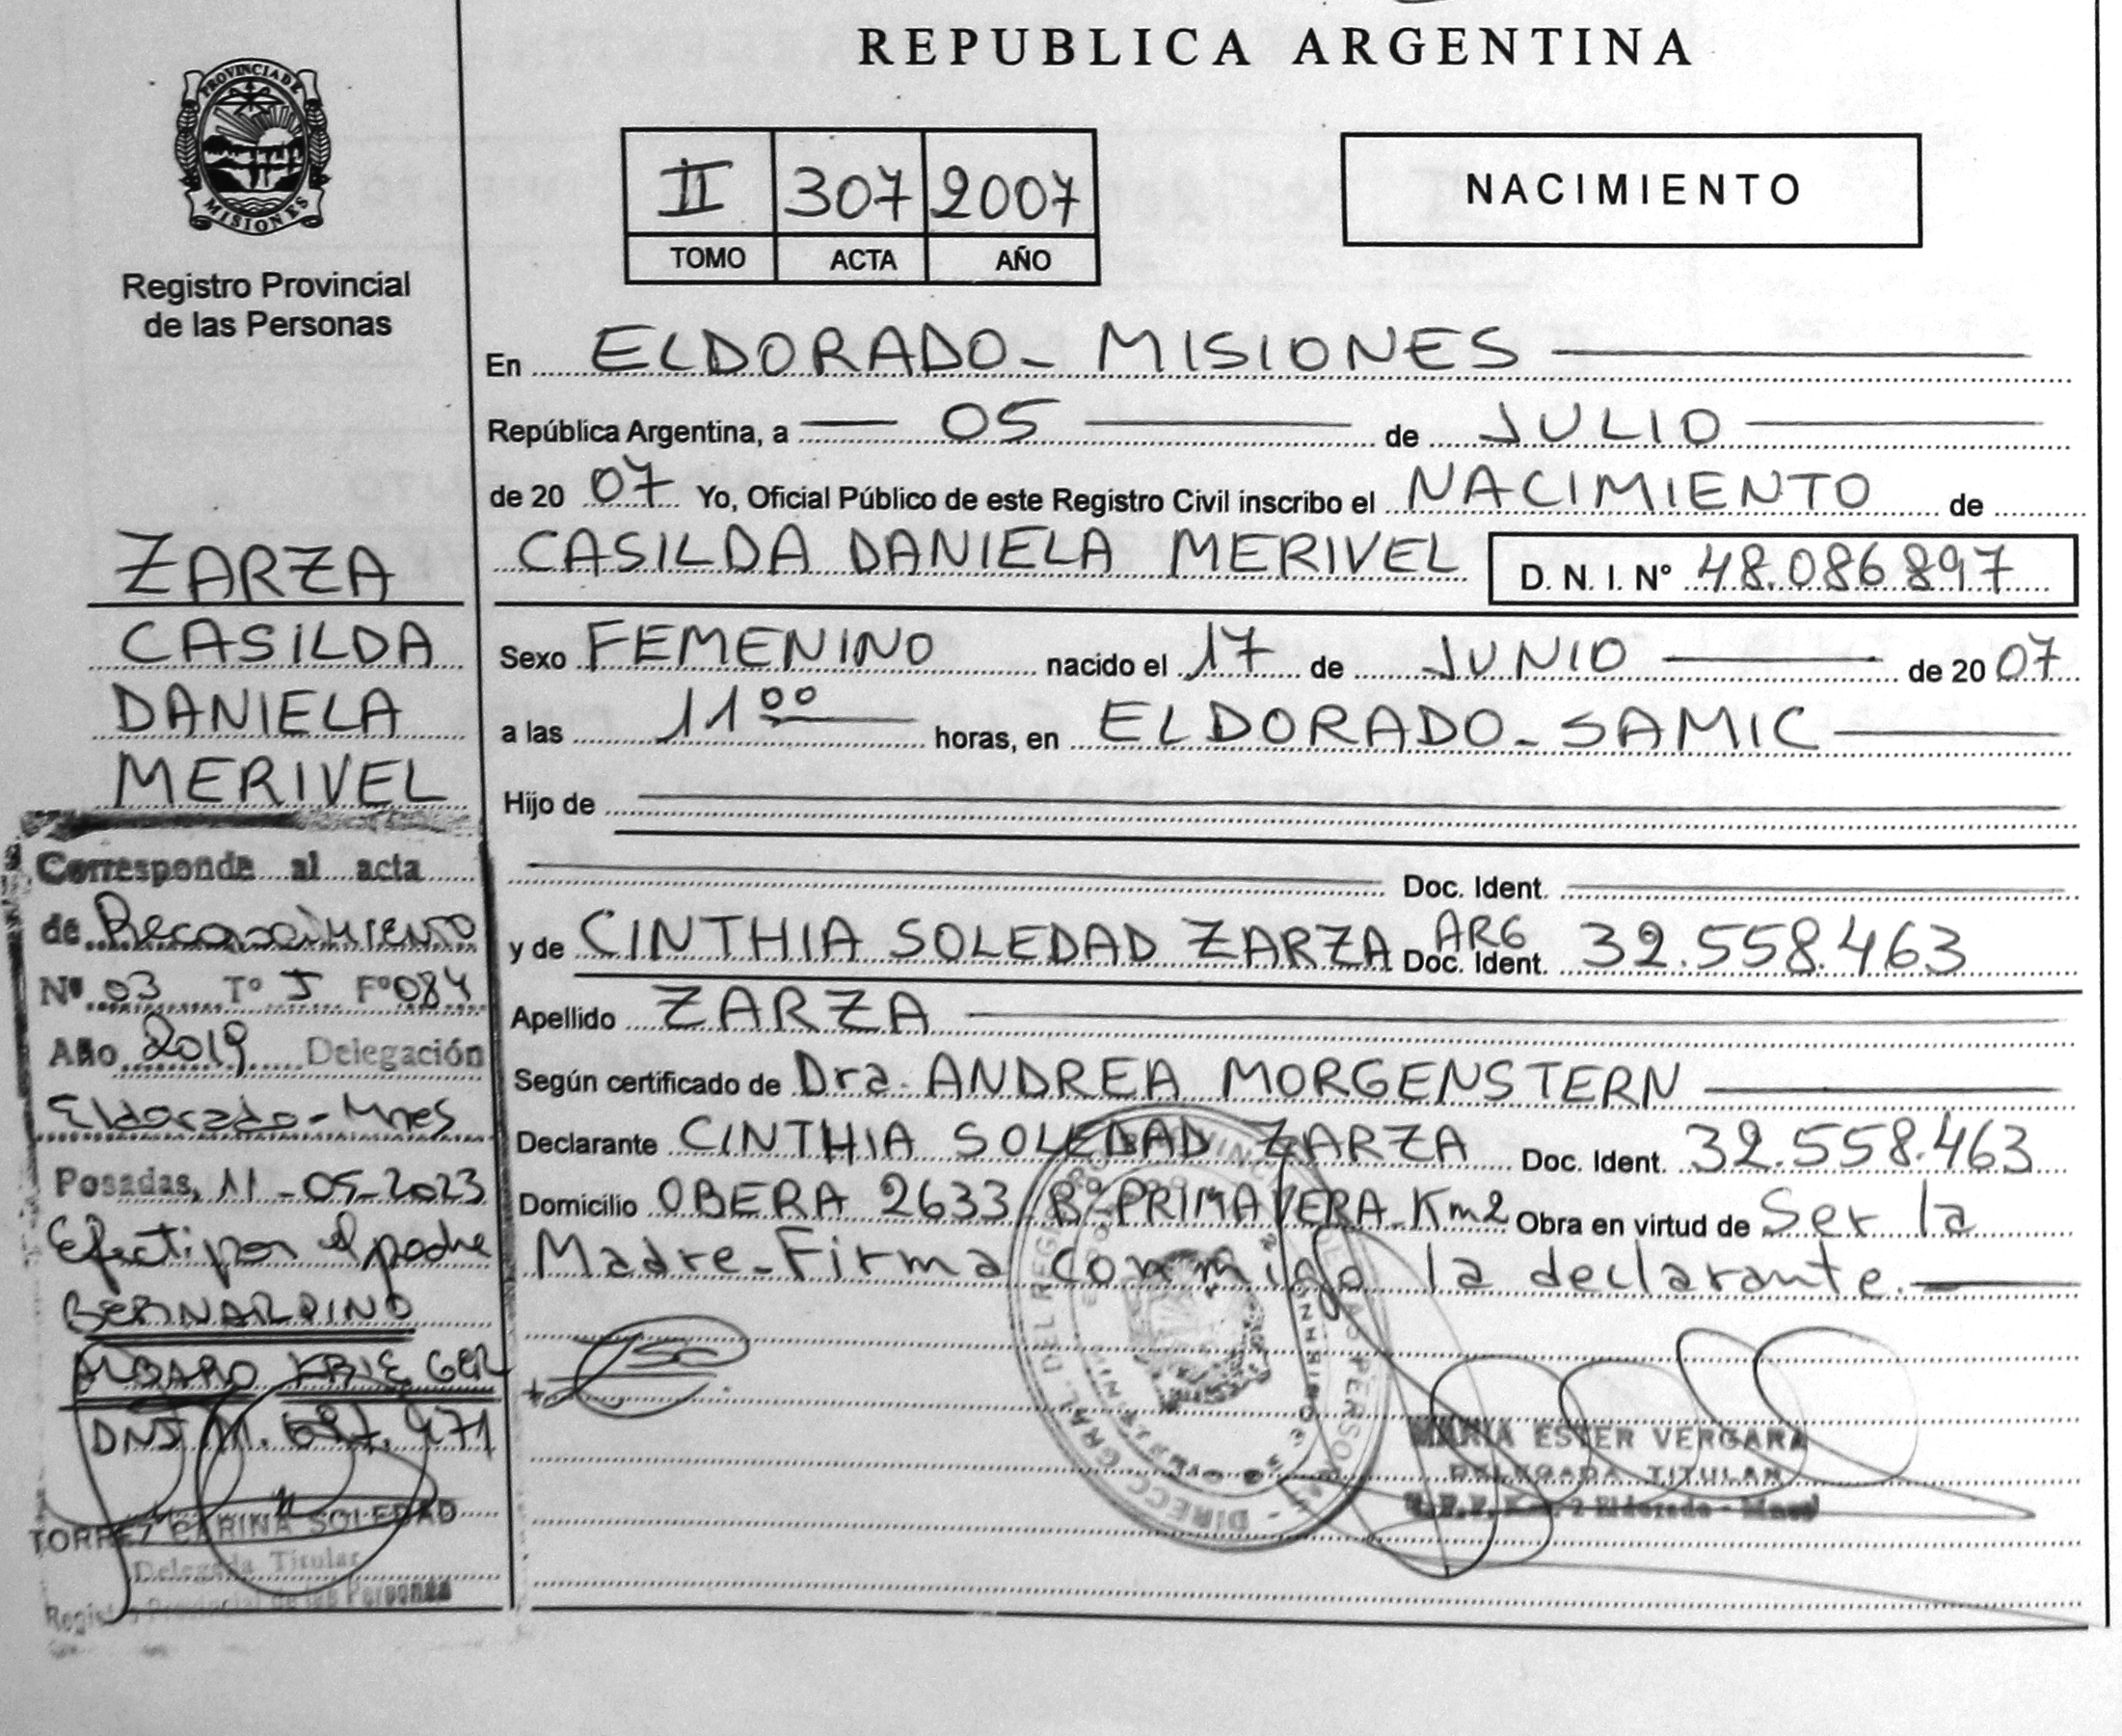 REPUBLICA ARGENTINA
PROVINCIA DE
MISIONES
Registro Provincial
de las Personas
II 307 2007
TOMO ACTA AÑO
NACIMIENTO
En ELDORADO - MISIONES
República Argentina, a 05 de JULIO
de 20 07 Yo, Oficial Público de este Registro Civil inscribo el NACIMIENTO de
CASILDA DANIELA MERIVEL D. N. I. N° 48.086.897
Sexo FEMENINO nacido el 17 de JUNIO de 20 07
a las 11 00 horas, en ELDORADO - SAMIC
Hijo de
Doc. Ident.
y de CINTHIA SOLEDAD ZARZA ARG Doc. Ident. 32.558.463
Apellido ZARZA
Según certificado de Dra. ANDREA MORGENSTERN
Declarante CINTHIA SOLEDAD ZARZA Doc. Ident. 32.558.463
Domicilio OBERA 2633 Bº PRIMAVERA Km2 Obra en virtud de Ser la
Madre - Firma conmigo la declarante.
MARIA ESTER VERGARA
DELEGADA TITULAR
Km. 2 Eldorado
ZARZA
CASILDA
DANIELA
MERIVEL
Corresponde al acta
de Reconocimiento
Nº 03 Tº I Fº 084
Año 2019 Delegación
Eldorado - Mnes
Posadas, 11-05-2023
por el padre
BERNARDINO
DNI
TORRES CARINA SOLEDAD
Delegada Titular
Registro Provincial de las Personas